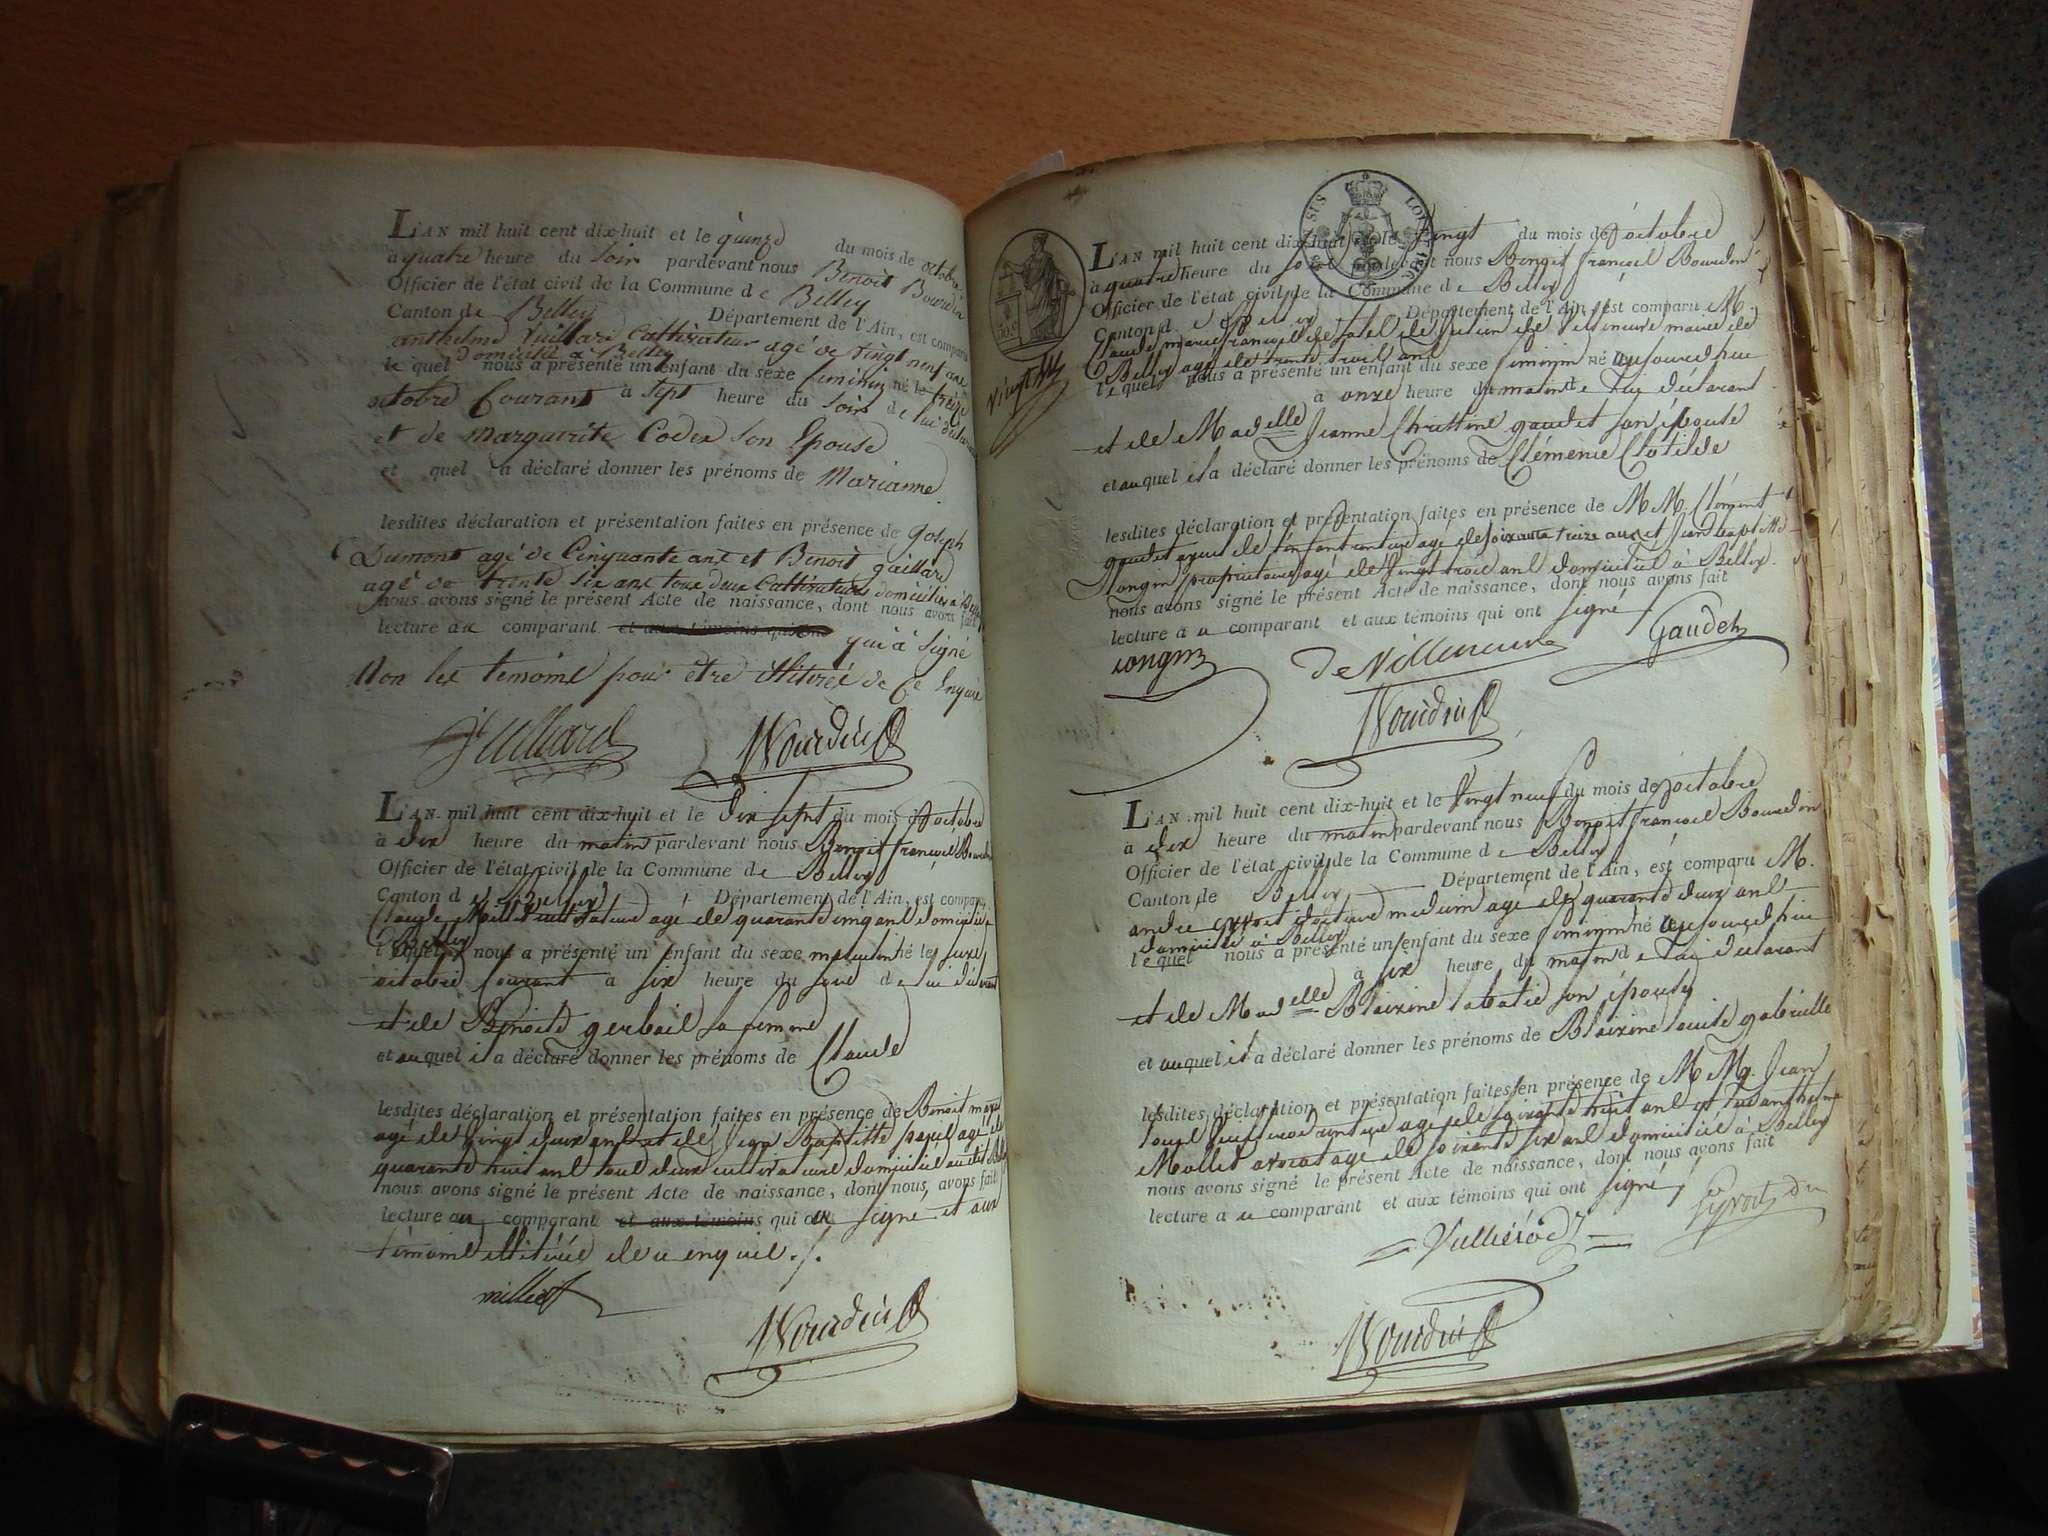 L'AN mil huit cent dix-huit et le quinze du mois de octobre
à quatre heure du soir pardevant nous Benoit Bourdin
Officier de l'état civil de la Commune de Belley
Canton de Belley Département de l'Ain, est comparu
anthelme Vuillard Cultivateur agé de vingt neuf ans
domicilié a Belley
le quel nous a présenté un enfant du sexe feminin né le treize
octobre Courant à sept heure du soir de lui déclarant
et de Marguerite Coder son Epouse
et quel a déclaré donner les prénoms de Marianne
lesdites déclaration et présentation faites en présence de Joseph
Dumont agé de Cinquante ans et Benoit gaillard
agé de trente six ans tous deux Cultivateurs domiciliés à Belley
nous avons signé le présent Acte de naissance, dont nous avons fait
lecture au comparant et aux témoins qui ont qui a signé
Non les temoins pour être illitérés de Ce Enquis
Vuillard Bourdin
L'AN mil huit cent dix-huit et le Dix sept du mois d'octobre
à dix heure du matin pardevant nous Benoit françois Bourdin
Officier de l'état civil de la Commune de Belley
Canton de Belley Département de l'Ain, est comparu
Claude cultivateur agé de quarante cinq ans domicilié a
Belley
lequel nous a présenté un enfant du sexe masculin né le seize
octobre Courant à six heure du soir de lui déclarant
et de Benoite gerbail sa femme
et auquel il a déclaré donner les prénoms de Claude
lesdites déclaration et présentation faites en présence de Benoit
agé de vingt deux ans et de Jean Baptiste agé de
quarante huit ans tous deux cultivateurs domiciliés audit Belley
nous avons signé le présent Acte de naissance, dont nous avons fait
lecture au comparant et aux témoins qui a signé et aux
témoins illitérés de ce enquis ./.
millet Bourdin
SIS LOI
50. c
vingt
L'AN mil huit cent dix-huit et le Vingt du mois de octobre
à quatre heure du soir pardevant nous Benoit françois Bourdin
Officier de l'état civil de la Commune de Belley
Canton de Belley Département de l'Ain, est comparu M.
Claude marie françois de maire de
Belley agé de trente trois ans
lequel nous a présenté un enfant du sexe féminin né aujourd'hui
à onze heure du matin de lui déclarant
et de Madelle Jeanne Christine gaudet son épouse
et auquel il a déclaré donner les prénoms de Clémence Clotilde
lesdites déclaration et présentation faites en présence de M M. Clément
gaudet ayeul de l'enfant agé de soixante treize ans et Jean Bapt
Longin propriétaire agé de Vingt trois ans domiciliés à Belley.
nous avons signé le présent Acte de naissance, dont nous avons fait
lecture à ce comparant et aux témoins qui ont signé
Longin de Villeneuve Gaudet
Bourdin
L'AN mil huit cent dix-huit et le Vingt neuf du mois de octobre
à dix heure du matin pardevant nous Benoit françois Bourdin
Officier de l'état civil de la Commune de Belley
Canton de Belley Département de l'Ain, est comparu M.
andré docteur medecin agé de quarante deux ans
domicilié à Belley
lequel nous a présenté un enfant du sexe féminin né aujourd'hui
à six heure du matin de lui déclarant
et de Madelle Blaixine son épouse
et auquel il a déclaré donner les prénoms de Blaixine louise gabrielle
lesdites déclaration et présentation faites en présence de M M. Jean
agé de soixante huit ans et anthelme
Mollet avocat agé de soixante six ans domiciliés à Belley
nous avons signé le présent Acte de naissance, dont nous avons fait
lecture à ce comparant et aux témoins qui ont signé
Bourdin